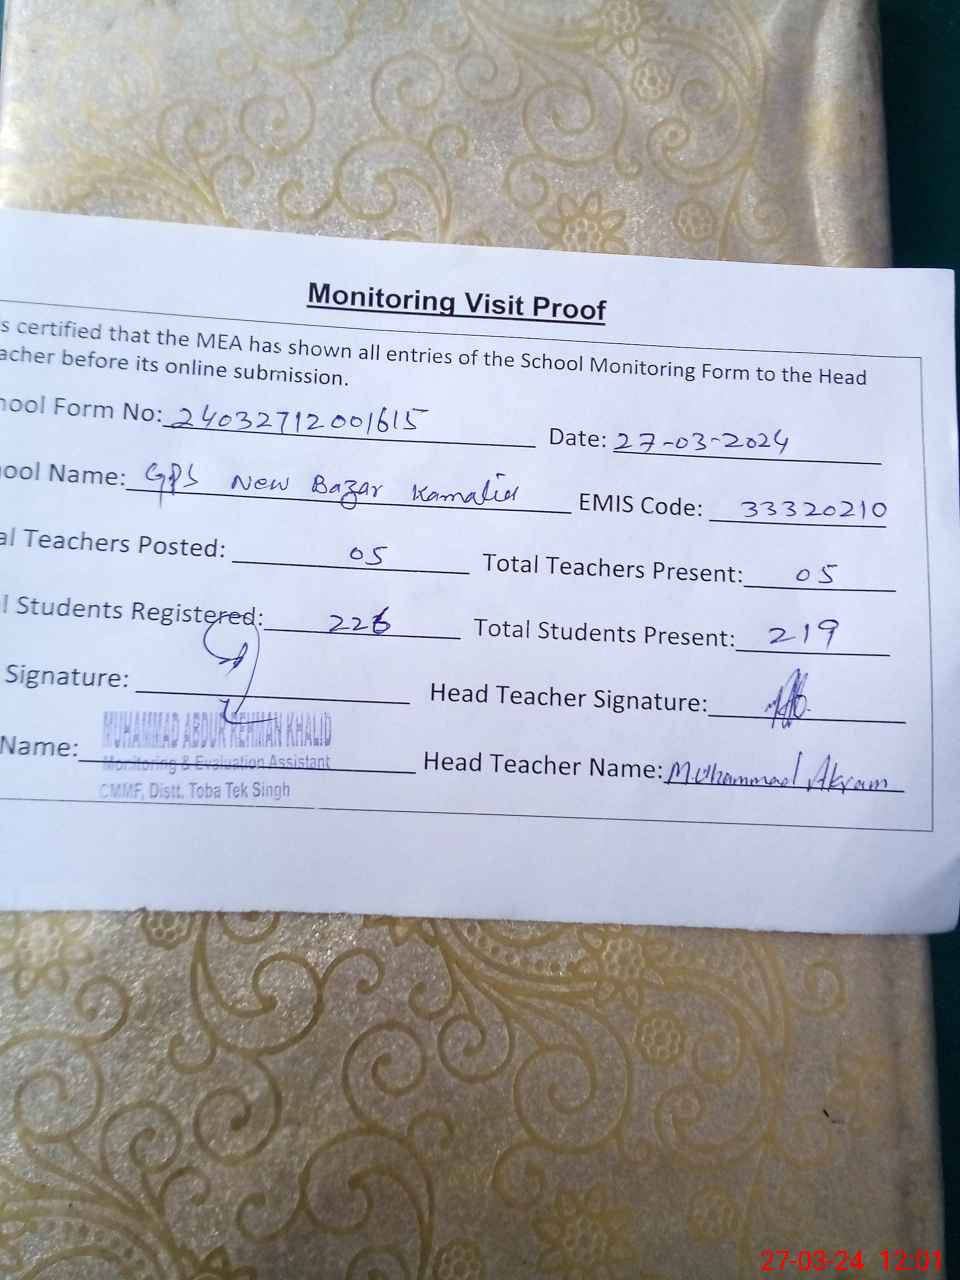 Monitoring Visit Proof
s certified that the MEA has shown all entries of the School Monitoring Form to the Head
acher before its online submission.
hool Form No: 24032712001615 Date: 27-03-2024
ool Name: GPS New Bazar Kamalia EMIS Code: 33320210
al Teachers Posted: 05 Total Teachers Present: 05
l Students Registered: 226 Total Students Present: 219
Signature: Head Teacher Signature:
Name: MUHAMMAD ABDUR REHMAN KHALID Head Teacher Name: Muhammad Akram
Monitoring & Evaluation Assistant
CMMF, Distt. Toba Tek Singh
27-03-24 12:01